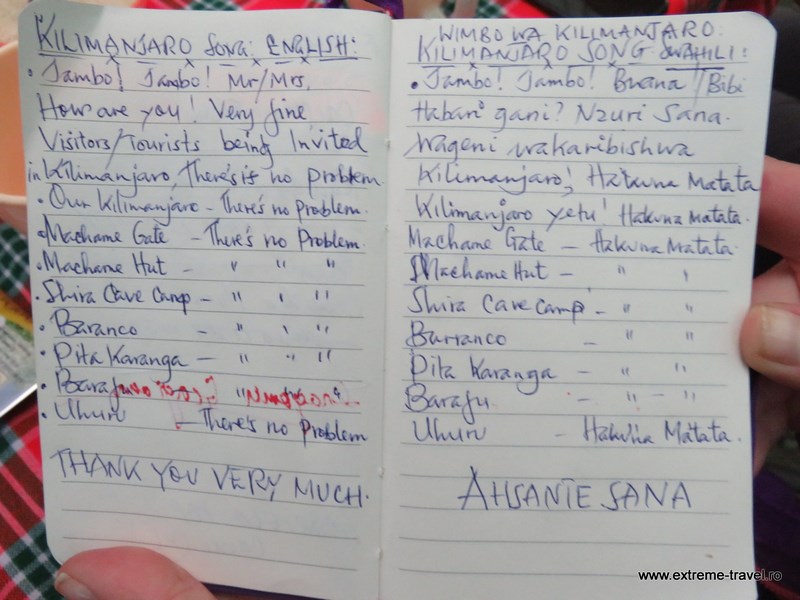 KILIMANJARO Song: ENGLISH:
• Jambo! Jambo! Mr/Mrs,
How are you! Very fine
Visitors/Tourists being Invited
in Kilimanjaro, There's is no problem.
• Our Kilimanjaro - There's no Problem.
• Machame Gate - There's no Problem.
• Machame Hut - " " "
• Shira Cave Camp - " " "
• Baranco - " " "
• Pita Karanga - " " "
• Barafu
• Uhuru - There's no problem
THANK YOU VERY MUCH.
WIMBO WA KILIMANJARO.
KILIMANJARO SONG SWAHILI:
• Jambo! Jambo! Bwana / Bibi
Habari gani? Nzuri Sana.
Wageni wakaribishwa
Kilimanjaro! Hakuna Matata
Kilimanjaro yetu! Hakuna Matata.
Machame Gate - Hakuna Matata.
Machame Hut - " "
Shira Cave Camp - " "
Barranco - " "
Pita Karanga - " "
Barafu - " - "
Uhuru - Hakuna Matata.
AHSANTE SANA
www.extreme-travel.ro